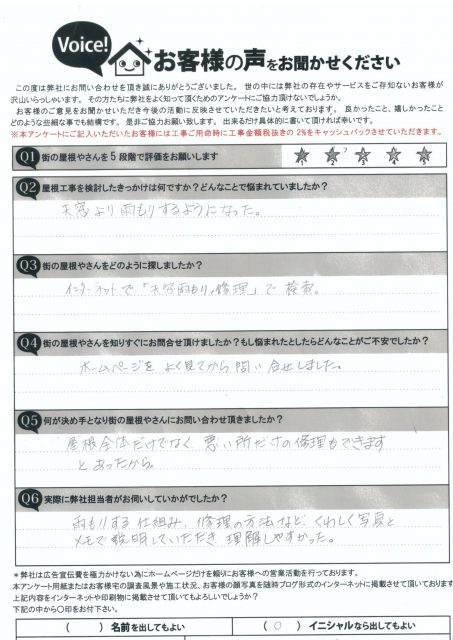 Voice!
お客様の声をお聞かせください
この度は弊社にお問い合わせを頂き誠にありがとうございました。世の中には弊社の存在やサービスをご存知ないお客様が
沢山いらっしゃいます。その方たちに弊社をよく知って頂くためのアンケートにご協力頂けないでしょうか。
お客様のご意見をお聞かせいただき今後の活動に反映させていただきたいと考えております。良かったこと、嬉しかったこと
どのような些細な事でも結構です。是非ご協力お願い致します。出来るだけ具体的に書いて頂ければ幸いです。
※本アンケートにご記入いただいたお客様には工事ご用命時に工事金額税抜きの2%をキャッシュバックさせていただきます。
Q1 街の屋根やさんを5段階で評価をお願いします
1 2 3 4 5
Q2 屋根工事を検討したきっかけは何ですか?どんなことで悩まれていましたか?
天窓より雨もりするようになった。
Q3 街の屋根やさんをどのように探しましたか?
インターネットで「天窓雨もり,修理」で検索。
Q4 街の屋根やさんを知りすぐにお問合せ頂けましたか?もし悩まれたとしたらどんなことがご不安でしたか?
ホームページをよく見てから問い合せしました。
Q5 何が決め手となり街の屋根やさんにお問い合わせ頂きましたか?
屋根全体だけでなく悪い所だけの修理もできます
とあったから。
Q6 実際に弊社担当者がお伺いしていかがでしたか?
雨もりする仕組み、修理の方法など、くわしく写真と
メモで説明していただき理解しやすかった。
＊弊社は広告宣伝費を極力かけない為にホームページだけを頼りにお客様への営業活動を行っております。
本アンケート用紙またはお客様宅の調査風景や施工状況、お客様の顔写真を随時ブログ形式のインターネットに掲載させて頂いております
上記内容をインターネットや印刷物に掲載させて頂いてもよろしいでしょうか?
下記の中から〇印をお付下さい。
( ) 名前を出してもよい
( ○ ) イニシャルなら出してもよい